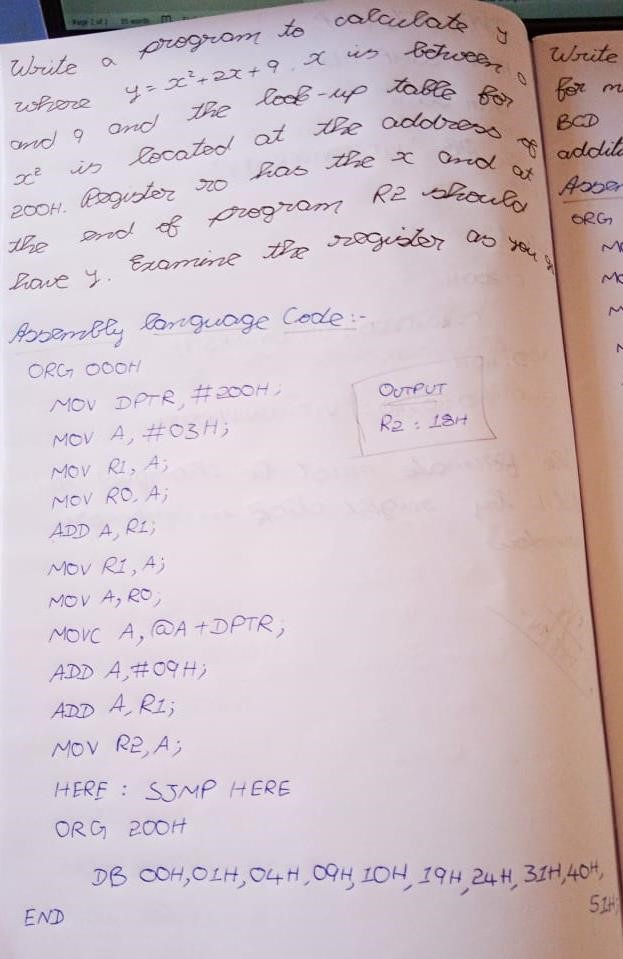 Page 1 of 1 85 words
Write a program to calculate y
where y = x²+2x+9. x is between 0
and 9 and the look-up table for
x² is located at the address of
200H. Register r0 has the x and at
the end of program R2 should
have y. Examine the register as you
Assembly language Code:-
ORG 000H
MOV DPTR, #200H;
MOV A, #03H;
MOV R1, A;
MOV R0, A;
ADD A, R1;
MOV R1, A;
MOV A, R0;
MOVC A, @A+DPTR;
ADD A, #09H;
ADD A, R1;
MOV R2, A;
HERE : SJMP HERE
ORG 200H
DB 00H, 01H, 04H, 09H, 10H, 19H, 24H, 31H, 40H,
51H;
END
OUTPUT
R2 : 18H
Write
for m
BCD
additi
Assem
ORG
MO
MO
M